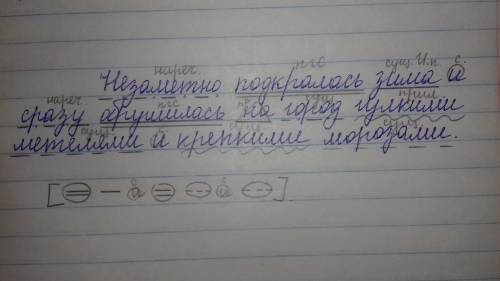 нареч. гл с сущ. И.п с.
Незаметно подкралась зима и
нареч. гл с пр. сущ. прил.
сразу обрушилась на город гулкими
сущ. с прил. сущ.
метелями и крепкими морозами.